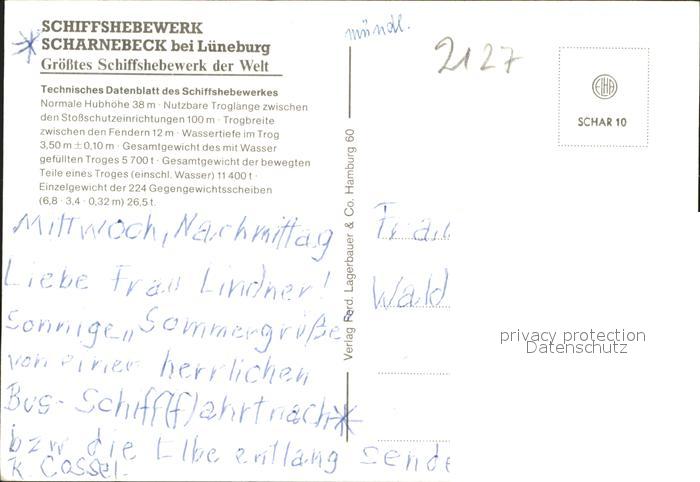 SCHIFFSHEBEWERK
SCHARNEBECK bei Lüneburg
Größtes Schiffshebewerk der Welt
Technisches Datenblatt des Schiffshebewerkes
Normale Hubhöhe 38 m · Nutzbare Troglänge zwischen
den Stoßschutzeinrichtungen 100 m · Trogbreite
zwischen den Fendern 12 m · Wassertiefe im Trog
3,50 m ± 0,10 m · Gesamtgewicht des mit Wasser
gefüllten Troges 5 700 t · Gesamtgewicht der bewegten
Teile eines Troges (einschl. Wasser) 11 400 t ·
Einzelgewicht der 224 Gegengewichtsscheiben
(6,8 · 3,4 · 0,32 m) 26,5 t.
Mittwoch, Nachmittag
Liebe Frau Lindner!
Sonnige,, Sommergrüße
von einer herrlichen
Bus- Schiff(f)ahrt nach *
bzw die Elbe entlang sende
K. Cassel.
mündl.
2127
Verlag Ferd. Lagerbauer & Co. Hamburg 60
EHA
SCHAR 10
Frau
Wald
privacy protection
Datenschutz